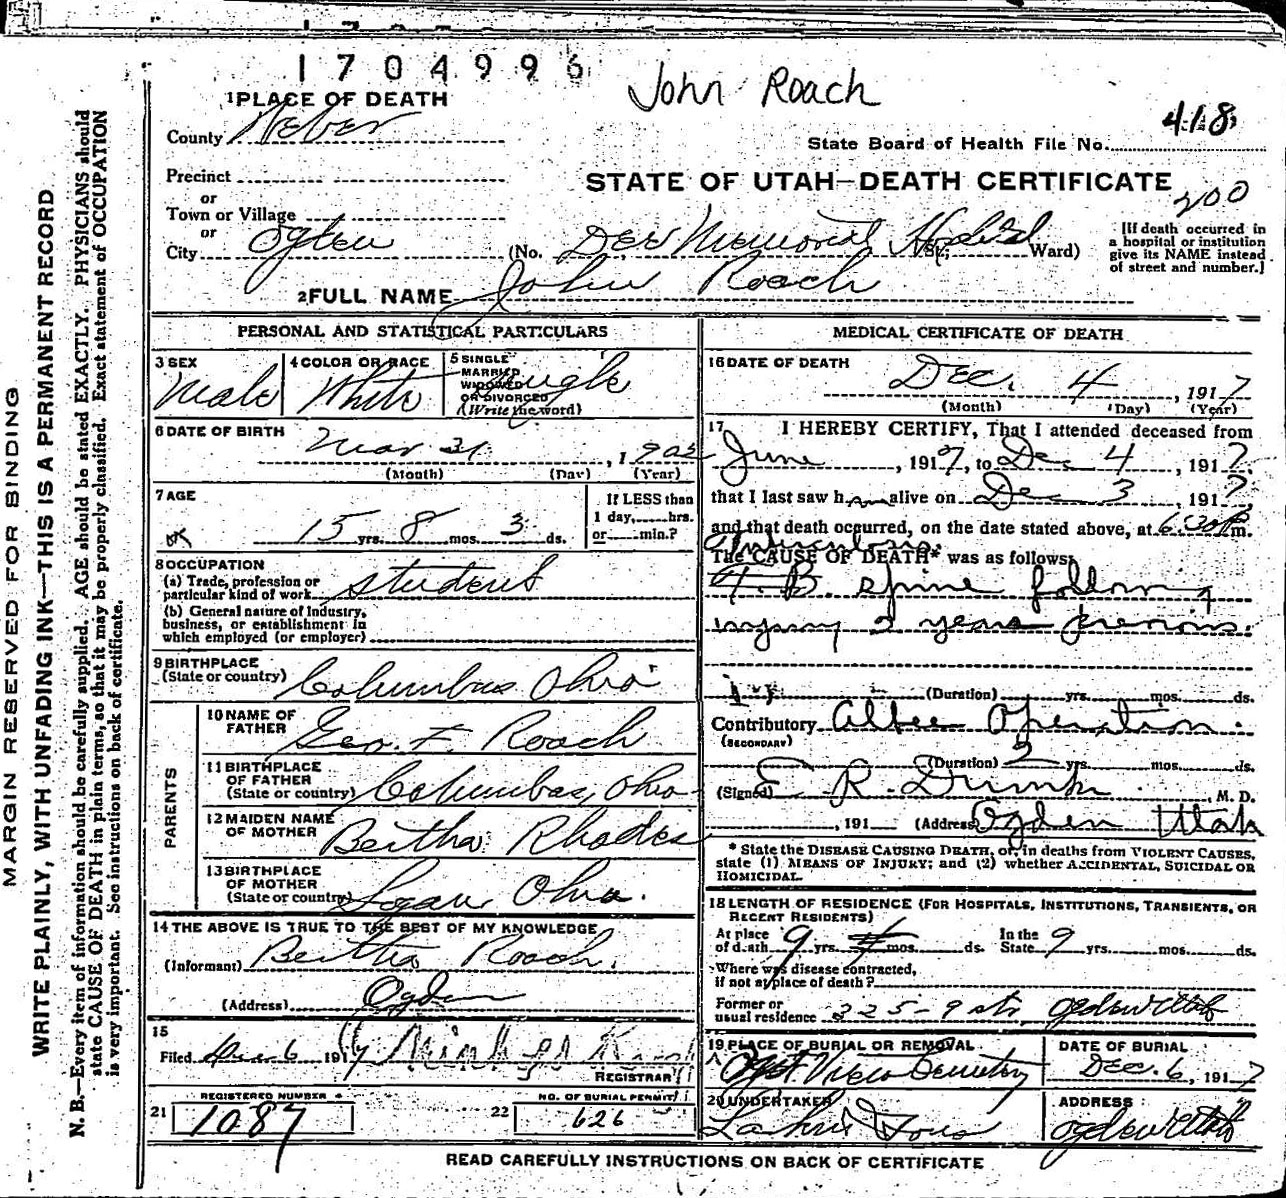 1704996
John Roach
1 PLACE OF DEATH
County Weber
State Board of Health File No. 418
Precinct
STATE OF UTAH—DEATH CERTIFICATE
200
or
Town or Village
or
City Ogden (No. Dee Memorial Hospital St.; Ward)
[If death occurred in
a hospital or institution
give its NAME instead
of street and number.]
2 FULL NAME John Roach
PERSONAL AND STATISTICAL PARTICULARS
3 SEX
Male
4 COLOR OR RACE
White
5 SINGLE
MARRIED
WIDOWED
OR DIVORCED
(Write the word)
Single
6 DATE OF BIRTH
Mar 31, 1902
(Month) (Day) (Year)
7 AGE
15 yrs. 8 mos. 3 ds.
If LESS than
1 day, hrs.
or min.?
8 OCCUPATION
(a) Trade, profession or
particular kind of work student
(b) General nature of industry,
business, or establishment in
which employed (or employer)
9 BIRTHPLACE
(State or country) Columbus Ohio
PARENTS
10 NAME OF
FATHER Geo. F. Roach
11 BIRTHPLACE
OF FATHER
(State or country) Columbus, Ohio
12 MAIDEN NAME
OF MOTHER Bertha Rhodes
13 BIRTHPLACE
OF MOTHER
(State or country) Logan Ohio.
14 THE ABOVE IS TRUE TO THE BEST OF MY KNOWLEDGE
(Informant) Bertha Roach.
(Address) Ogden
15
Filed Dec 6 1917
REGISTRAR
21
REGISTERED NUMBER
1087
22
NO. OF BURIAL PERMIT
626
MEDICAL CERTIFICATE OF DEATH
16 DATE OF DEATH
Dec. 4, 1917
(Month) (Day) (Year)
17 I HEREBY CERTIFY, That I attended deceased from
June, 1917, to Dec 4, 1917.
that I last saw him alive on Dec 3, 1917
and that death occurred, on the date stated above, at 6:30 P m.
The CAUSE OF DEATH* was as follows:
T. B. spine following
injury 2 years previous.
(Duration) yrs. mos. ds.
Contributory Albee Operation.
(SECONDARY)
(Duration) 2 yrs. mos. ds.
(Signed) E. R. , M. D.
, 191 (Address) Ogden Utah
* State the DISEASE CAUSING DEATH, or, in deaths from VIOLENT CAUSES,
state (1) MEANS OF INJURY; and (2) whether ACCIDENTAL, SUICIDAL OR
HOMICIDAL.
18 LENGTH OF RESIDENCE (FOR HOSPITALS, INSTITUTIONS, TRANSIENTS, OR
RECENT RESIDENTS)
At place of death 9 yrs. mos. ds. In the State 9 yrs. mos. ds.
Where was disease contracted,
if not at place of death?
Former or
usual residence 225-9 str. Ogden Utah
19 PLACE OF BURIAL OR REMOVAL
View Cemetery
DATE OF BURIAL
Dec. 6, 1917
20 UNDERTAKER
ADDRESS
Ogden Utah
READ CAREFULLY INSTRUCTIONS ON BACK OF CERTIFICATE
MARGIN RESERVED FOR BINDING
WRITE PLAINLY, WITH UNFADING INK—THIS IS A PERMANENT RECORD
N. B.—Every item of information should be carefully supplied. AGE should be stated EXACTLY. PHYSICIANS should
state CAUSE OF DEATH in plain terms, so that it may be properly classified. Exact statement of OCCUPATION
is very important. See instructions on back of certificate.